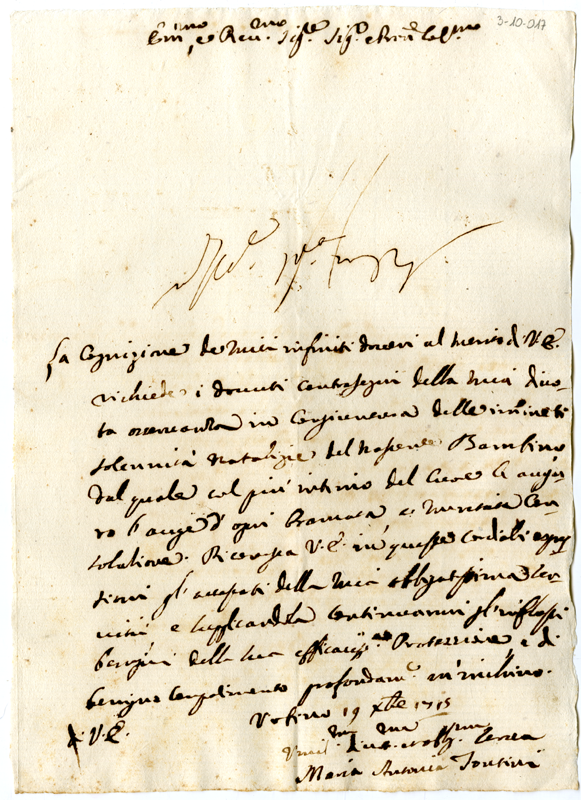 3-10-017
Em.mo, e Rev.mo Sig.re Sig.re e Pron Col.mo
La Cognizione de miei infiniti doveri al merito di V.E.
richiede i dovuti contrasegni della mia divo-
ta osservanza in congiuntura delle imineti
solennità natalizie del nascente Bambino
dal quale col più intimo del Cuore Le augu-
ro l'auge d'ogni bramata e meritata con-
solatione. Riceva V.E. in queste cordiali espres
sioni gl'attestati della mia obligatissima ser-
vitù e supplicandola continuarmi gl'riflessi
benigni della sua efficacis.ma Protezzione, e di
benigno compatimento profondam.e m'inchino.
19 Xbre 1715
D V.E.
Umil.ma Dev.ma et Obl.ma serva
Maria Antonia